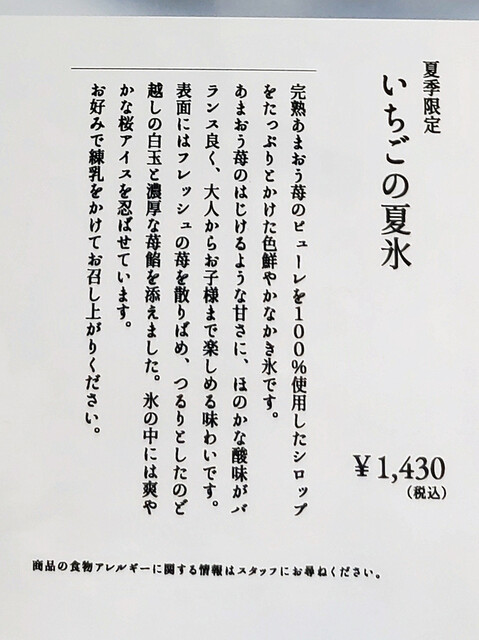 夏季限定
いちごの夏氷
¥1,430
(税込)
完熟あまおう苺のピューレを100%使用したシロップ
をたっぷりとかけた色鮮やかなかき氷です。
あまおう苺のはじけるような甘さに、ほのかな酸味がバ
ランス良く、大人からお子様まで楽しめる味わいです。
表面にはフレッシュの苺を散りばめ、つるりとしたのど
越しの白玉と濃厚な苺餡を添えました。氷の中には爽や
かな桜アイスを忍ばせています。
お好みで練乳をかけてお召し上がりください。
商品の食物アレルギーに関する情報はスタッフにお尋ねください。